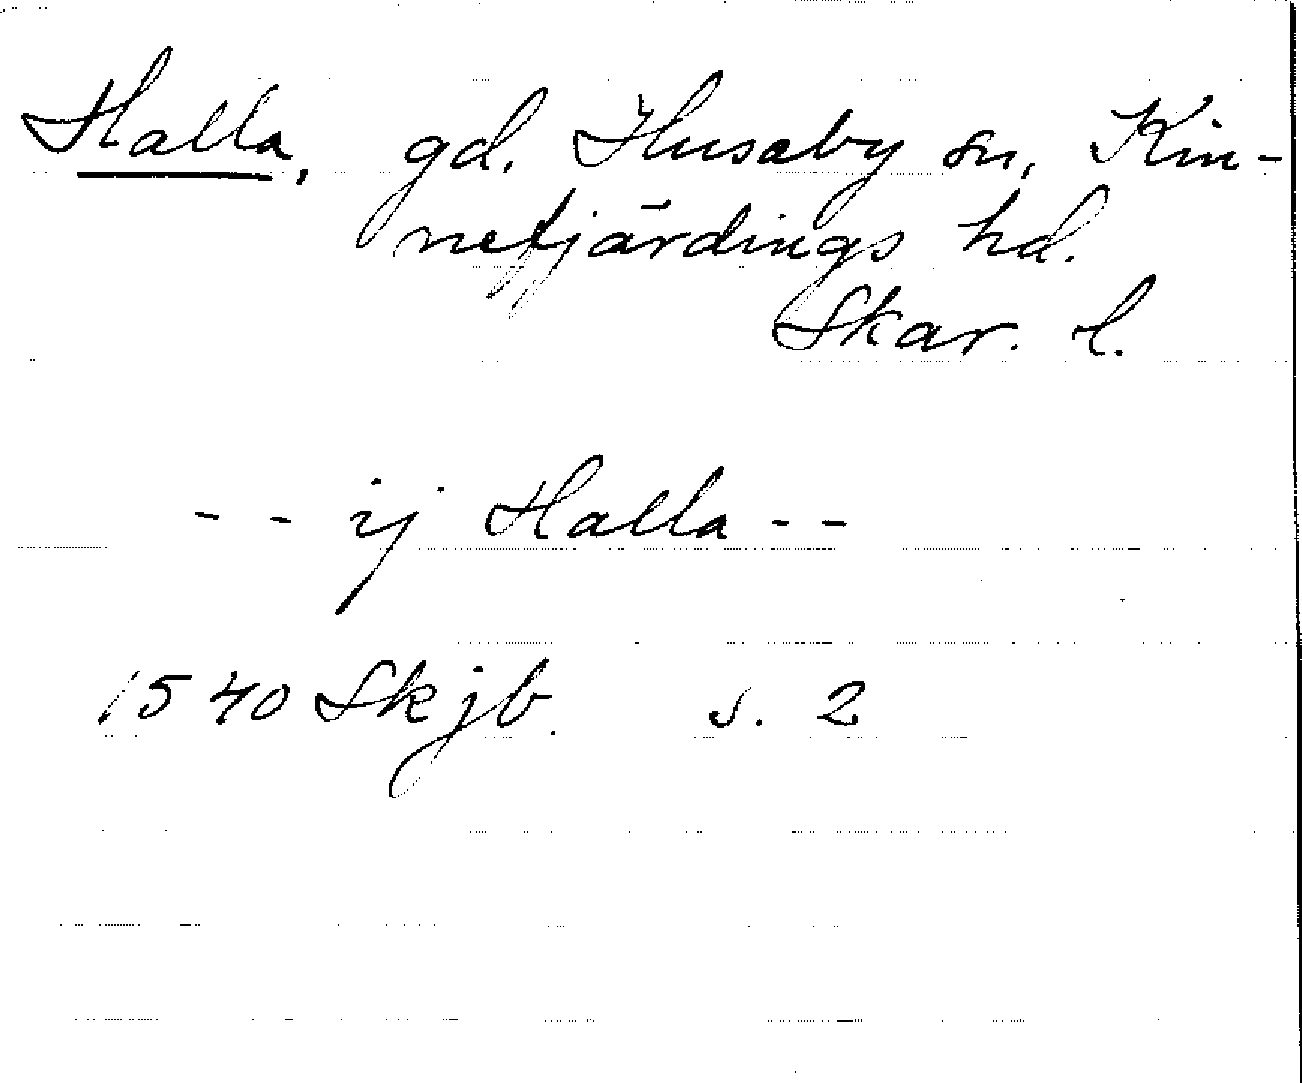 Halla, gd. Husaby sn, Kin-
nefjärdings hd.
Skar. l.
-- ij Halla --
1540 Skjb. s. 2